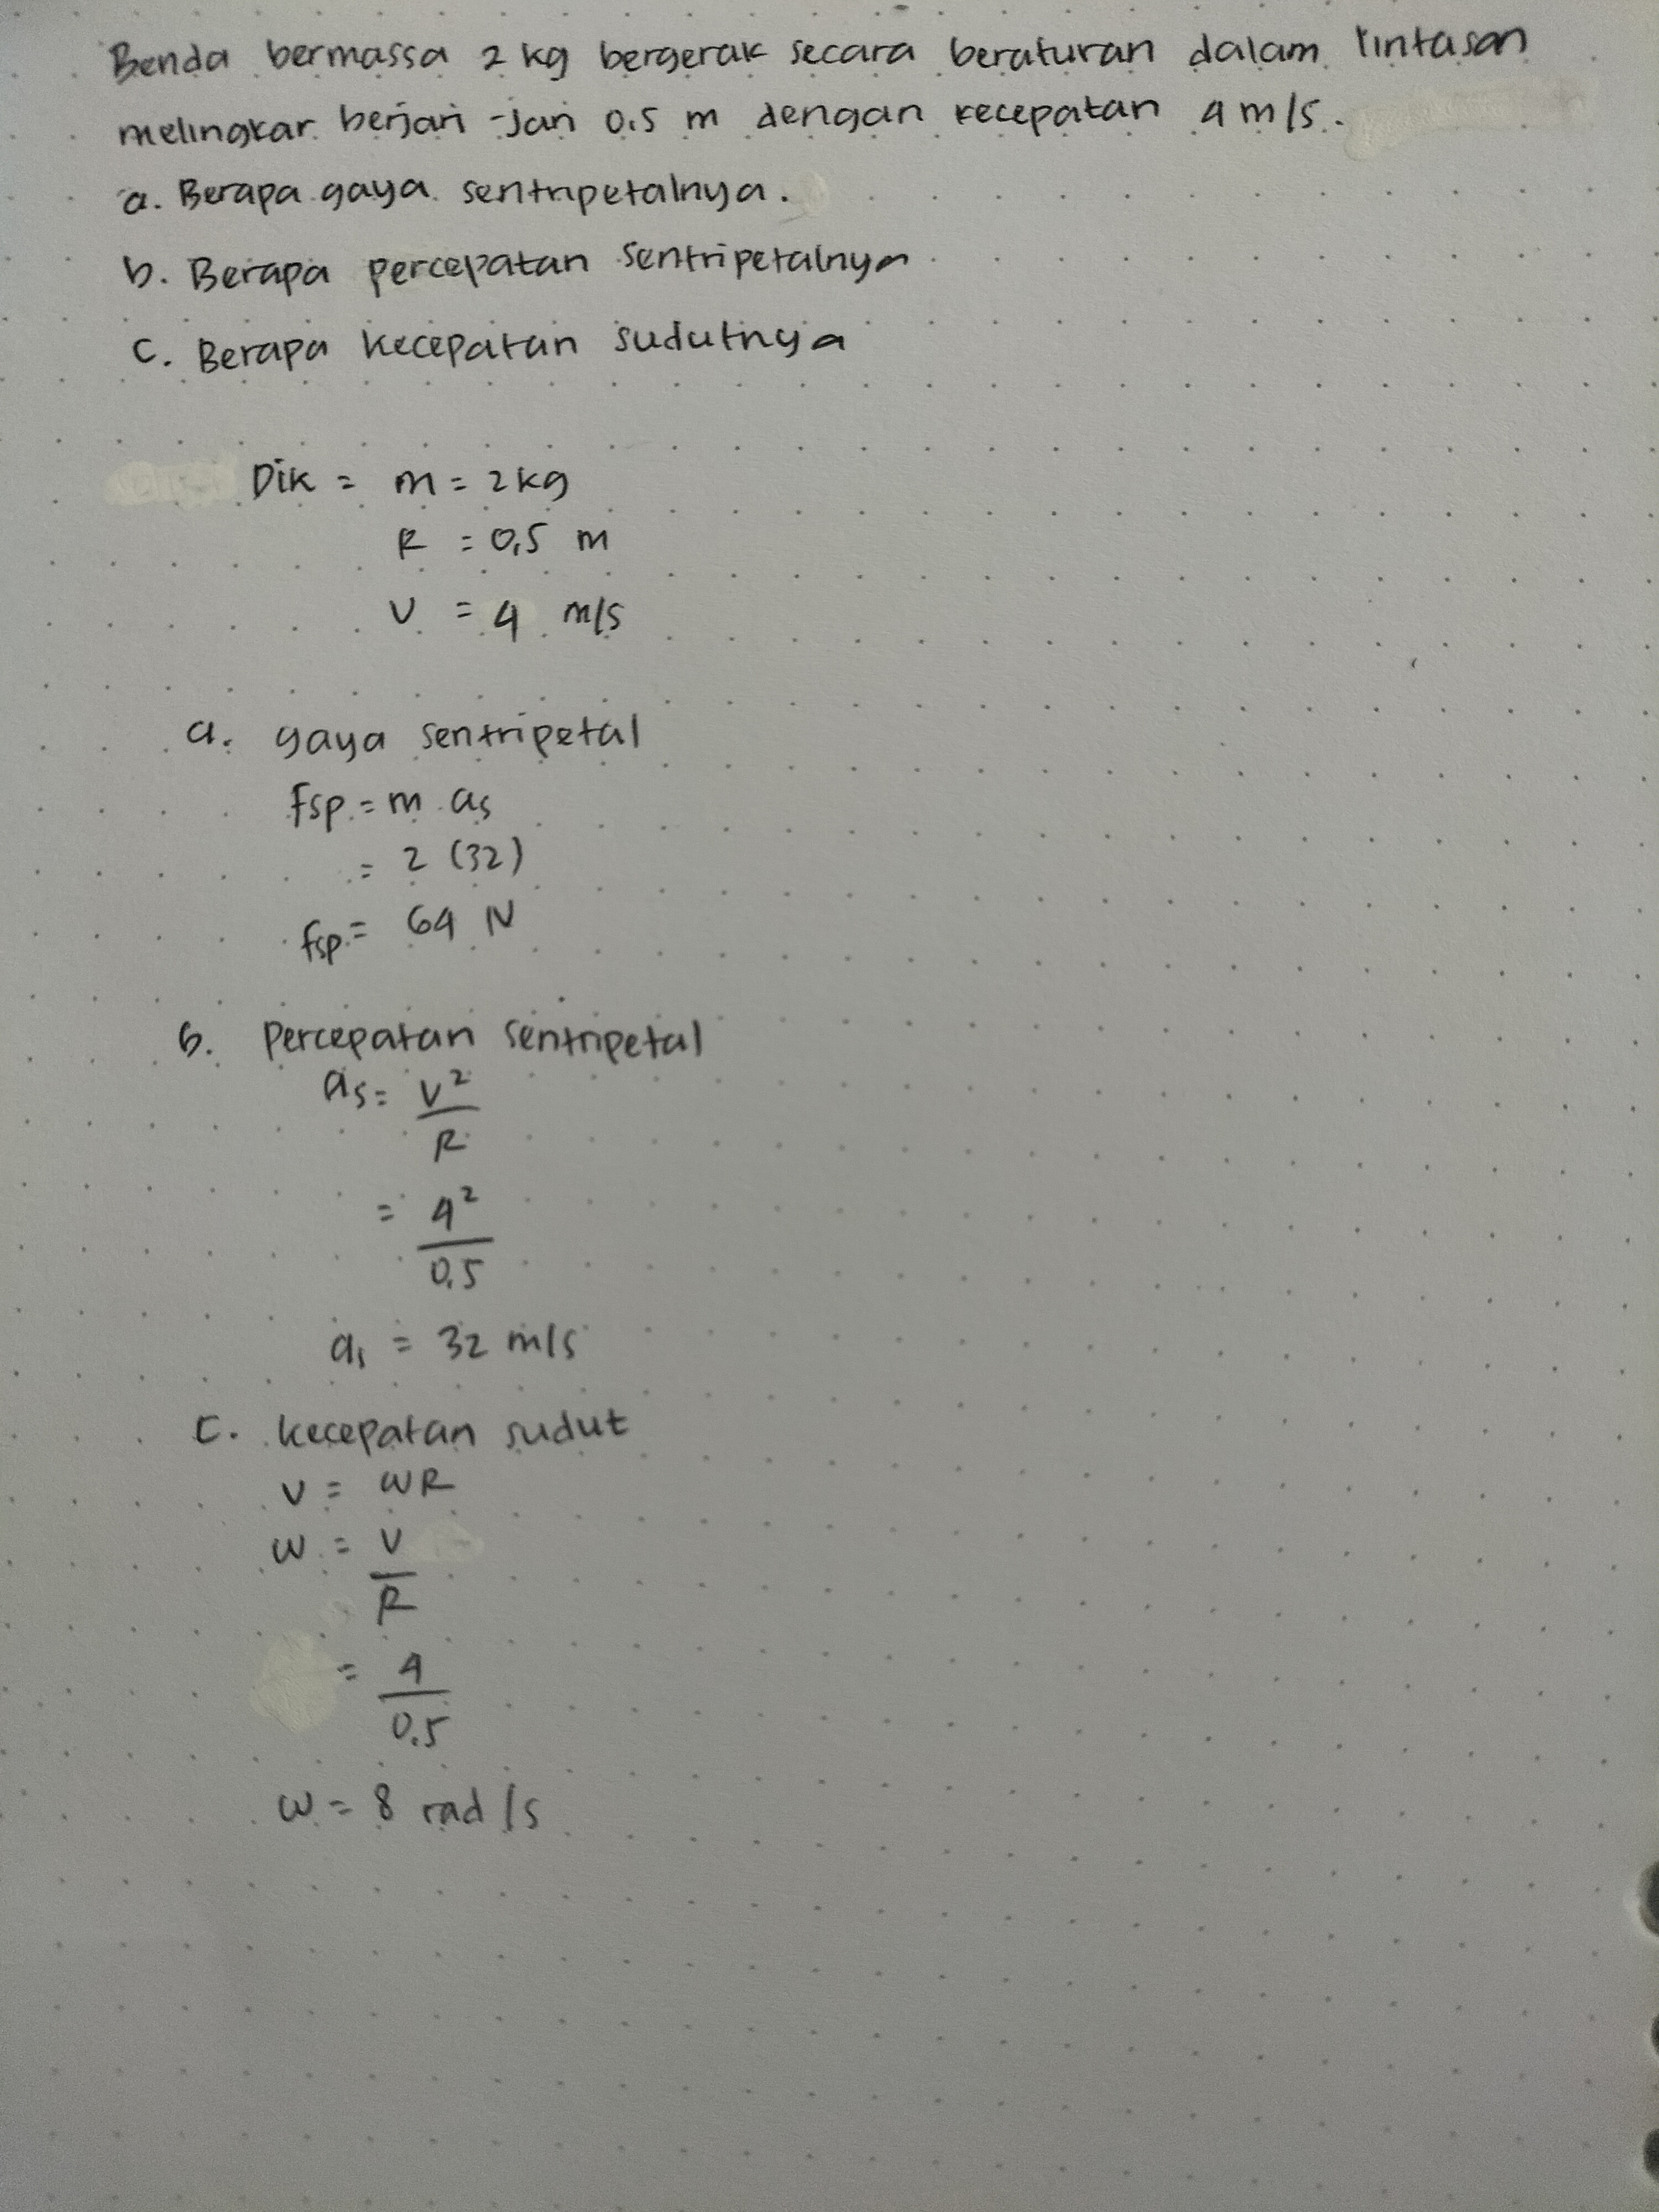 Benda bermassa 2 kg bergerak secara beraturan dalam lintasan
melingkar berjari-jari 0,5 m dengan kecepatan 4 m/s.
a. Berapa gaya sentripetalnya.
b. Berapa percepatan sentripetalnya
c. Berapa kecepatan sudutnya
Dik = m = 2 kg
R = 0,5 m
V = 4 m/s
a. gaya sentripetal
Fsp = m as
= 2 (32)
fsp = 64 N
b. Percepatan sentripetal
as = V²
R
= 4²
0,5
as = 32 m/s
C. kecepatan sudut
V = ωR
ω = V
R
= 4
0,5
ω = 8 rad/s